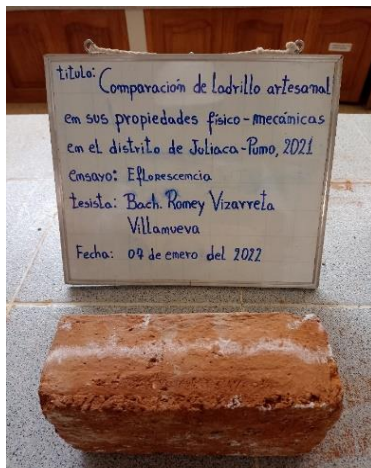 titulo: Comparación de ladrillo artesanal
en sus propiedades físico-mecánicas
en el distrito de Juliaca-Puno, 2021
ensayo: Eflorescencia
tesista: Bach. Romey Vizarreta
Villanueva
Fecha: 07 de enero del 2022